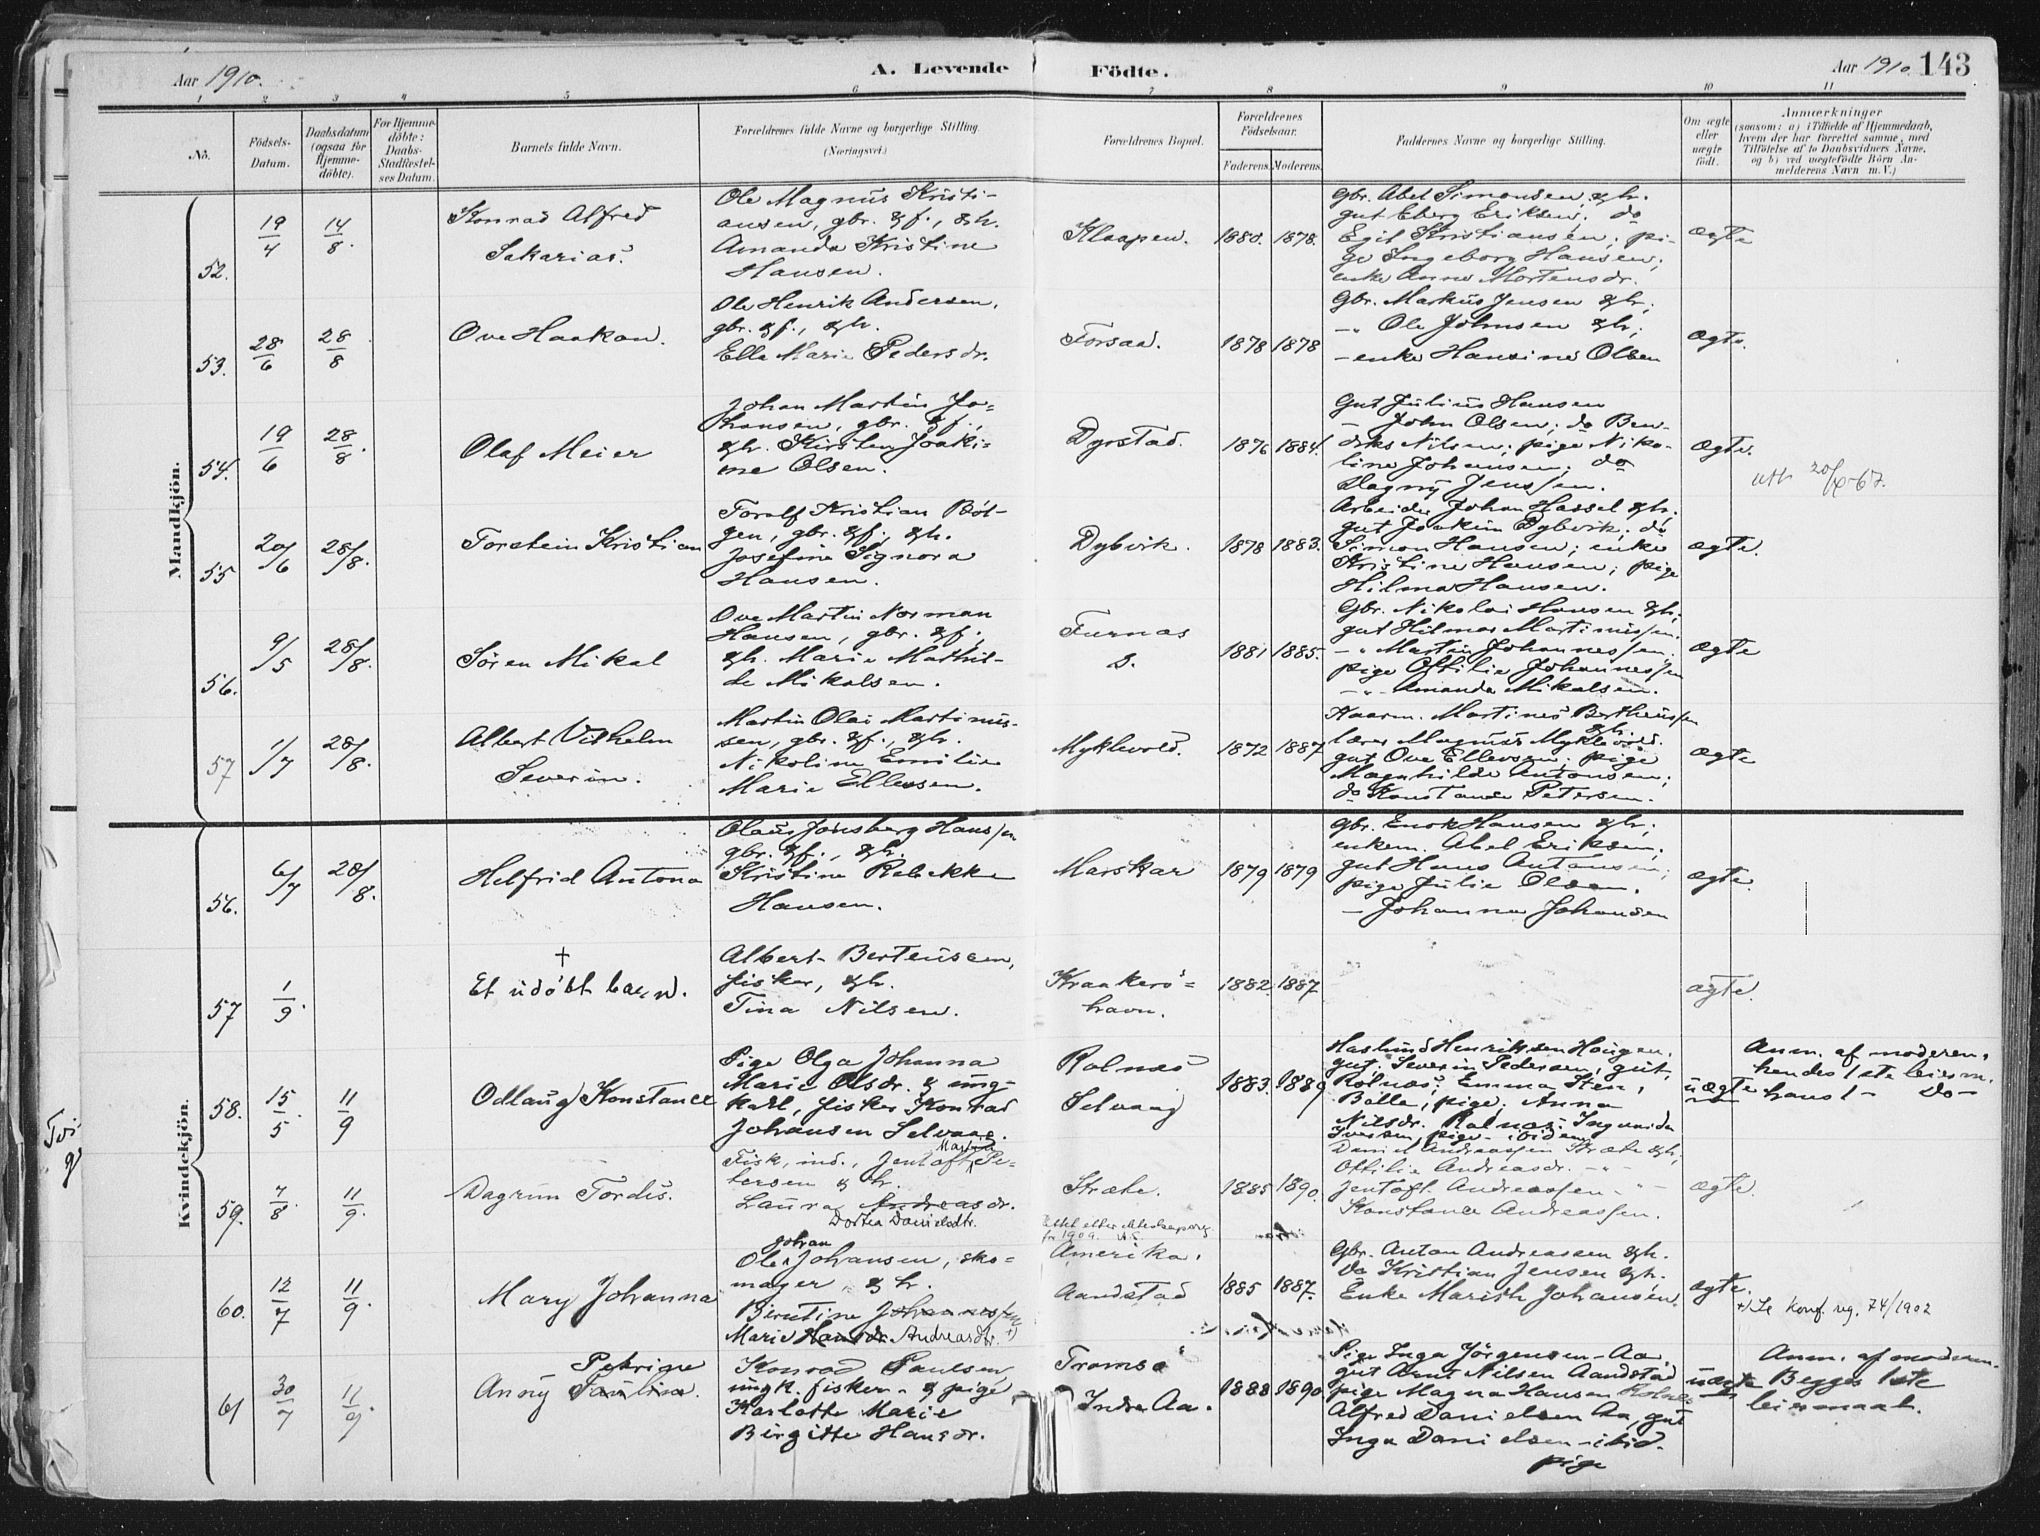 Aar 1910.
A. Levende
Födte.
Aar 1910.
143
1 2 3 4 5 6 7 8 9 10 11
No.
Födsels-
Datum.
Daabsdatum
(ogsaa for
Hjemme-
döbte).
For Hjemme-
döbte:
Daabs-
Stadfæstel-
ses Datum.
Barnets fulde Navn.
Forældrenes fulde Navne og borgerlige Stilling.
(Næringsvei.)
Forældrenes Bopæl.
Forældrenes
Födselsaar.
Faderens.
Moderens.
Faddernes Navne og borgerlige Stilling.
Om ægte
eller
uægte
födt.
Anmærkninger
(saasom: a) i Tilfælde af Hjemmedaab,
hvem der har forrettet samme, med
Tilföielse af to Daabsvidners Navne,
og b) ved uægtefödte Börn An-
melderens Navn m. V.)
Mandkjön.
52.
19/4
14/8
Konrad Alfred
Sakarias.
Ole Magnus Kristi-
ansen, gbr. & f., & h.
Amanda Kristine
Hansen.
Klaapen.
1880.
1878.
Gbr. Abel Simonsen, & h.
gut Eberg Eriksen; do
Egil Kristiansen; pi-
ge Ingeborg Hansen;
enke Anne Mortensdr.
ægte
53.
28/6
28/8
Ove Haakon.
Ole Henrik Andersen,
gbr. & f., & h.
Ella Marie Pedersdr.
Forsaa.
1878
1878
Gbr. Markus Jensen & h;
-"- Ole Johnsen & h;
- enke Hansine Olsen
ægte.
54.
19/6
28/8
Olaf Meier
Johan Martin Jo-
hansen, gbr. & f.,
& h. Kirsten Joaki-
me Olsen.
Dyrstad.
1876
1884.
Gut Julius Hansen
- John Olsen; do Ben-
diks Nilsen; pige Niko-
line Johansen; do
Dagny Jenssen.
ægte.
utt. 20/X-67.
55
20/6
28/8.
Torstein Kristian
Toralf Kristian Böl-
gen, gbr. & f., & h.
Josefine Signora
Hansen.
Dybvik.
1878
1883.
Arbeider Johan Hassel & h;
gut Joakim Dybvik; do
Simon Hansen; enke
Kristine Hansen; pige
Hilma Hansen.
ægte.
56.
9/5
28/8.
Sören Mikal
Ove Martin Norman
Hansen, gbr. & f.,
& h. Marie Mathil-
de Mikalsen.
Furnes
s.
1881
1885.
Gbr. Nikolai Hansen & h;
gut Hilmar Martinussen.
-"- Martin Johannessen.
pige Ottilie Johannessen
-"- Amanda Mikalsen.
ægte
57
1/7
28/8.
Albert Vilhelm
Severin.
Martin Olai Martinus-
sen, gbr. & f., & h.
Nikoline Emilie
Marie Ellevsen.
Myklevold.
1872
1887
Martines Bertheussen
& h.
lærer Magnus Myklevold.
gut Ove Ellevsen; pige
Magnhilde Antonsen;
do Konstance Petersen.
ægte
Kvindekjön.
56.
6/7
28/8.
Helfrid Antona
Olaus Jonsberg Hanssen
gbr. & f., & h.
Kristine Rebekke
Hansen.
Marskar
1879
1879
Gbr. Enok Hansen & h;
enkem. Abel Eriksen;
gut Hans Antonsen;
pige Julie Olsen.
- Johanna Johansen
ægte.
57
1/9.
†
Et udöbt barn.
Albert Berteusen,
fisker, & h.
Tina Nilsen.
Kraakerö-
havn.
1882.
1887.
ægte.
58.
15/5
11/9
Odlaug Konstance
Pige Olga Johanna
Marie Olsdr. & ung-
karl, fisker Konrad
Johansen Selvaag.
Rolnæs
Selvaag
1883.
1889
Haslund Henriksen Haugen,
gut, Severin Pedersen, gut,
Rolnæs, Emma Sten,
Bolle, pige, Anna
Nilsdr. Rolnæs. Ingvarda
Iversen, pige - ibidem
uægte
Anm. af moderen.
hendes 1ste leierm.
hans 1 - Do -
59.
7/8
11/9.
Dagrun Tordis.
Martin
Fisk, ind., Jentoft Pe-
tersen & h.
Laura Andreasdr.
Dortea Danielsdtr.
Stræte.
1885
1890.
Daniel Andreassen Stræte & h;
Ottilie Andreasdr. -"-
Jentoft Andreassen -"-
Konstance Andreassen.
ægte.
60.
12/7
11/9.
Mary Johanna
Johan
Ole Johansen, sko-
mager & h.
Berntine Johannessen
Marie Hansdr. Andreasdtr. +)
fr 1909.
Amerika.
Aandstad
1885
1887.
Gbr. Anton Andreasen & h.
Do Kristian Jensen & h.
Enke Marith Johansen.
ægte.
+) Se konf. reg. 74/1902
61
30/7
11/9.
Petrine
Anny Paulina.
Konrad Paulsen
ungk. fisker & pige
Karlotte Marie
Birgitte Hansdr.
Tromsö
Indre Aa.
1888
1890
Pige Inga Jörgensen - Aa.
gut Arnt Nilsen Aandstad
pige Magna Hansen
Alfred Danielsen Aa, gut
Inga Danielsen - ibid.
pige
uægte
Anm. af moderen.
Begges 1ste
leiermaal.